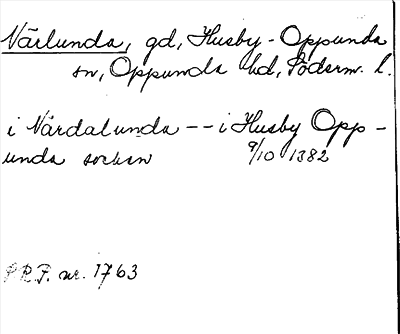 Närlunda, gd, Husby-Oppunda
sn, Oppunda hd, Söderm. l.
i Nærdalunda -- i Husby Opp-
unda sokn
9/10 1382
P.R.P. nr. 1763